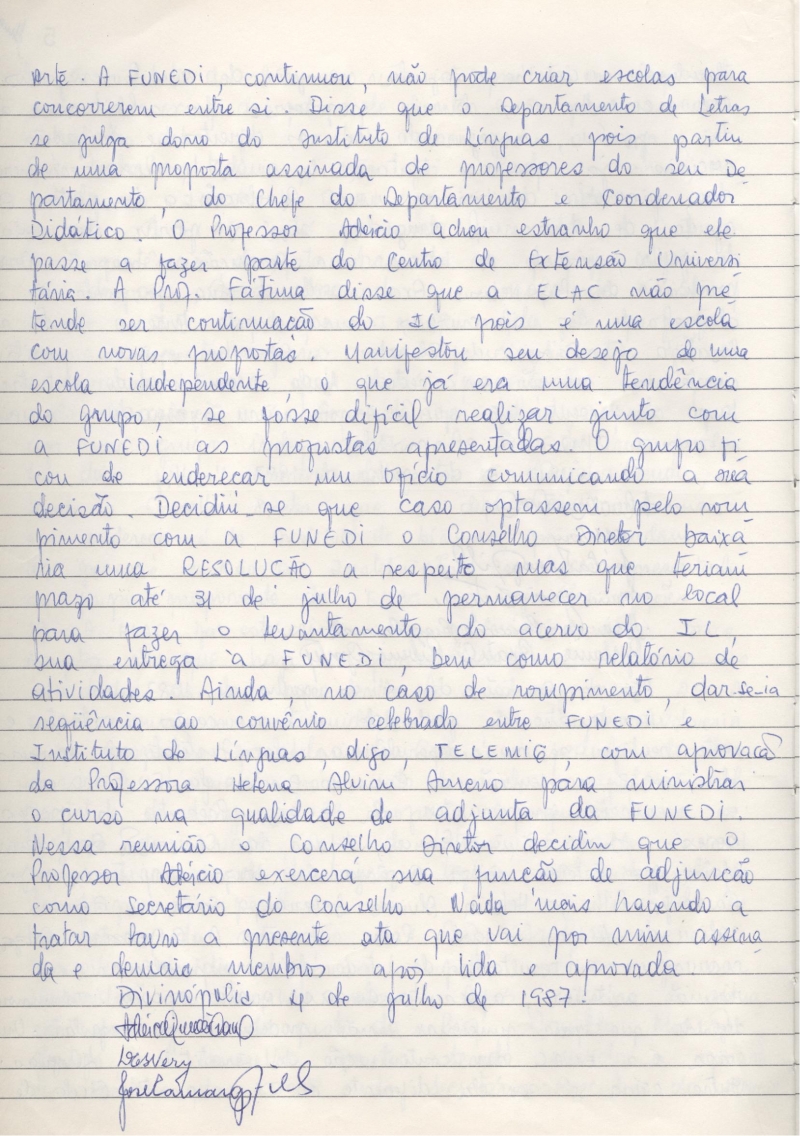 Arte. A FUNEDI, continuou, não pode criar escolas para
concorrerem entre si. Disse que o Departamento de Letras
se julga dono do Instituto de Línguas pois partiu
de uma proposta assinada de professores do seu De
partamento, do Chefe do Departamento e Coordenador
Didático. O Professor Adércio achou estranho que ele
passe a fazer parte do Centro de Extensão Universi
tária. A Prof. Fátima disse que a ELAC não pre
tende ser continuação do IL pois é uma escola
com novas propostas. Manifestou seu desejo de uma
escola independente, o que já era uma tendência
do grupo, se fosse difícil realizar junto com
a FUNEDI as propostas apresentadas. O grupo fi
cou de enderecar um ofício comunicando a sua
decisão. Decidiu-se que caso optassem pelo rom
pimento com a FUNEDI o Conselho Diretor baixa
ria uma RESOLUCÃO a respeito mas que teriam
prazo até 31 de julho de permanecer no local
para fazer o levantamento do acervo do IL,
sua entrega à FUNEDI, bem como relatório de
atividades. Ainda, no caso de rompimento, dar-se-ia
seqüência ao convênio celebrado entre FUNEDI e
Instituto de Línguas, digo, TELEMIG, com aprovacã
da Professora Helena Alvim Ameno para ministrar
o curso na qualidade de adjunta da FUNEDI.
Nessa reunião o Conselho Diretor decidiu que o
Professor Adércio exercerá sua funcão de adjuncão
como Secretário do Conselho. Nada mais havendo a
tratar lavro a presente ata que vai por mim assina
da e demais membros após lida e aprovada
Divinópolis 4 de julho de 1987.